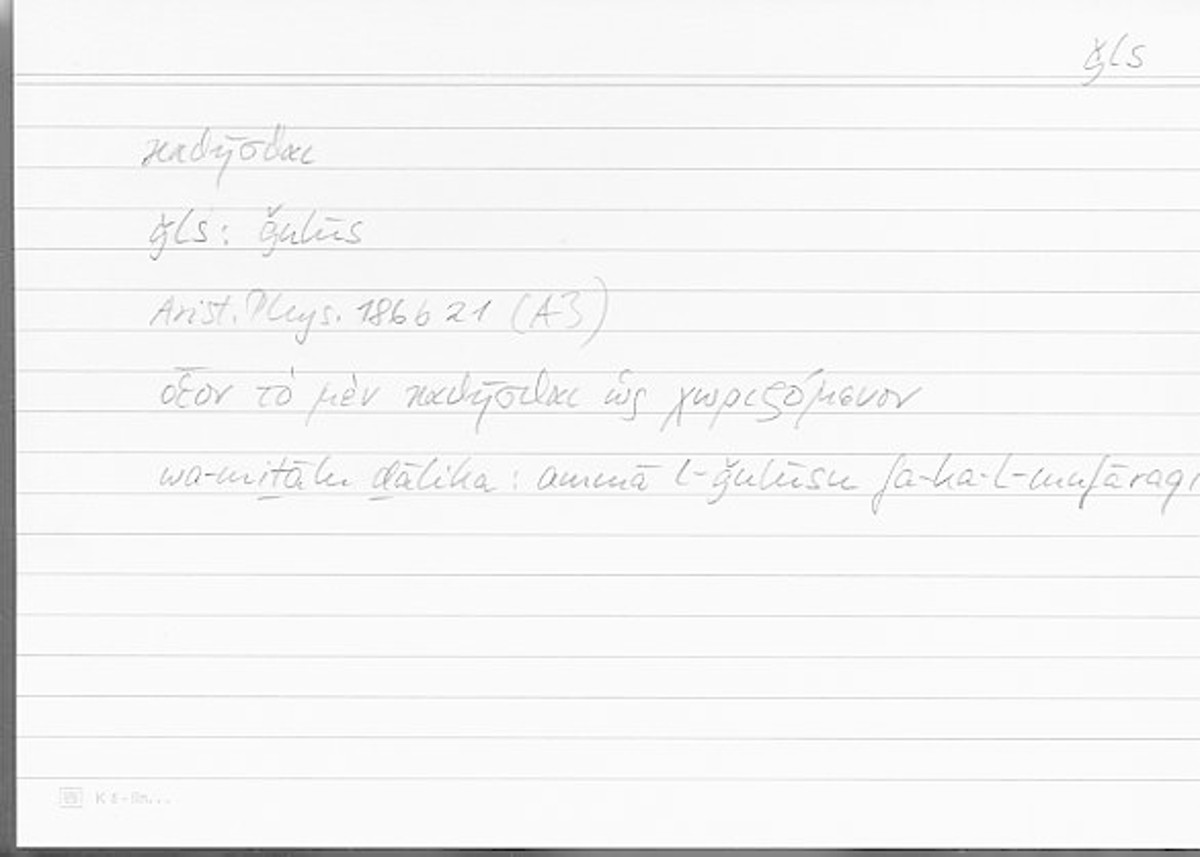 ǧls
καθῆσθαι
ǧls: ǧulūs
Arist. Phys. 186b21 (A3)
οἷον τὸ μὲν καθῆσθαι ὡς χωριζόμενον
wa-miṯālu ḏālika: ammā l-ǧulūsu fa-ka-l-mufāraqi